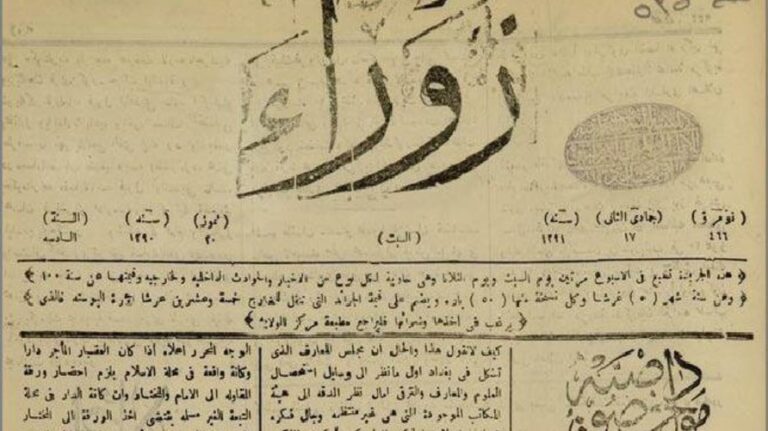 زوراء
(نومرو) (جمادى الثانى) (سنه) (تموز) (سنه) (السنة)
٤٦٦ ١٧ ١٢٩١ (السبت) ٢٠ ١٢٩٠ السادسه
هذه الجريدة تطبع فى الاسبوع مرتين يوم السبت ويوم الثلاثا وهى حاوية لكل نوع من الاخبار والحوادث الداخليه والخارجيه وقيمتها عن سنة ١٠٠
وعن ستة شهر (٥٠) غرشا وكل نسخة منها (٥٠) باره ويضم على قيمة الجرائد التى تنقل للخارج خمسة وعشرين غرشا اجرة البوسته فالذى
يرغب فى أخذها ونشرها فليراجع مطبعة مركز الولايه
داخليه
كيف لا نقول هذا والحال ان مجلس المعارف الذى
تشكل فى بغداد اول ما نظر الى وسايل استحصال
العلوم والمعارف والترقى امال نظر الدقه الى هيئة
المكاتب الموجودة التى هى غير منتظمه وبيال فكره
الوجه المحرر اعلاه اذا كان العقار المأجر دارا
وكانة واقعة فى محلة الاسلام يلزم احضار ورقة
المقاوله الى الامام والمختار وان كانة الدار فى محلة
التبعة الغير مسلمه يقتضى اخذ الورقة الى المختار